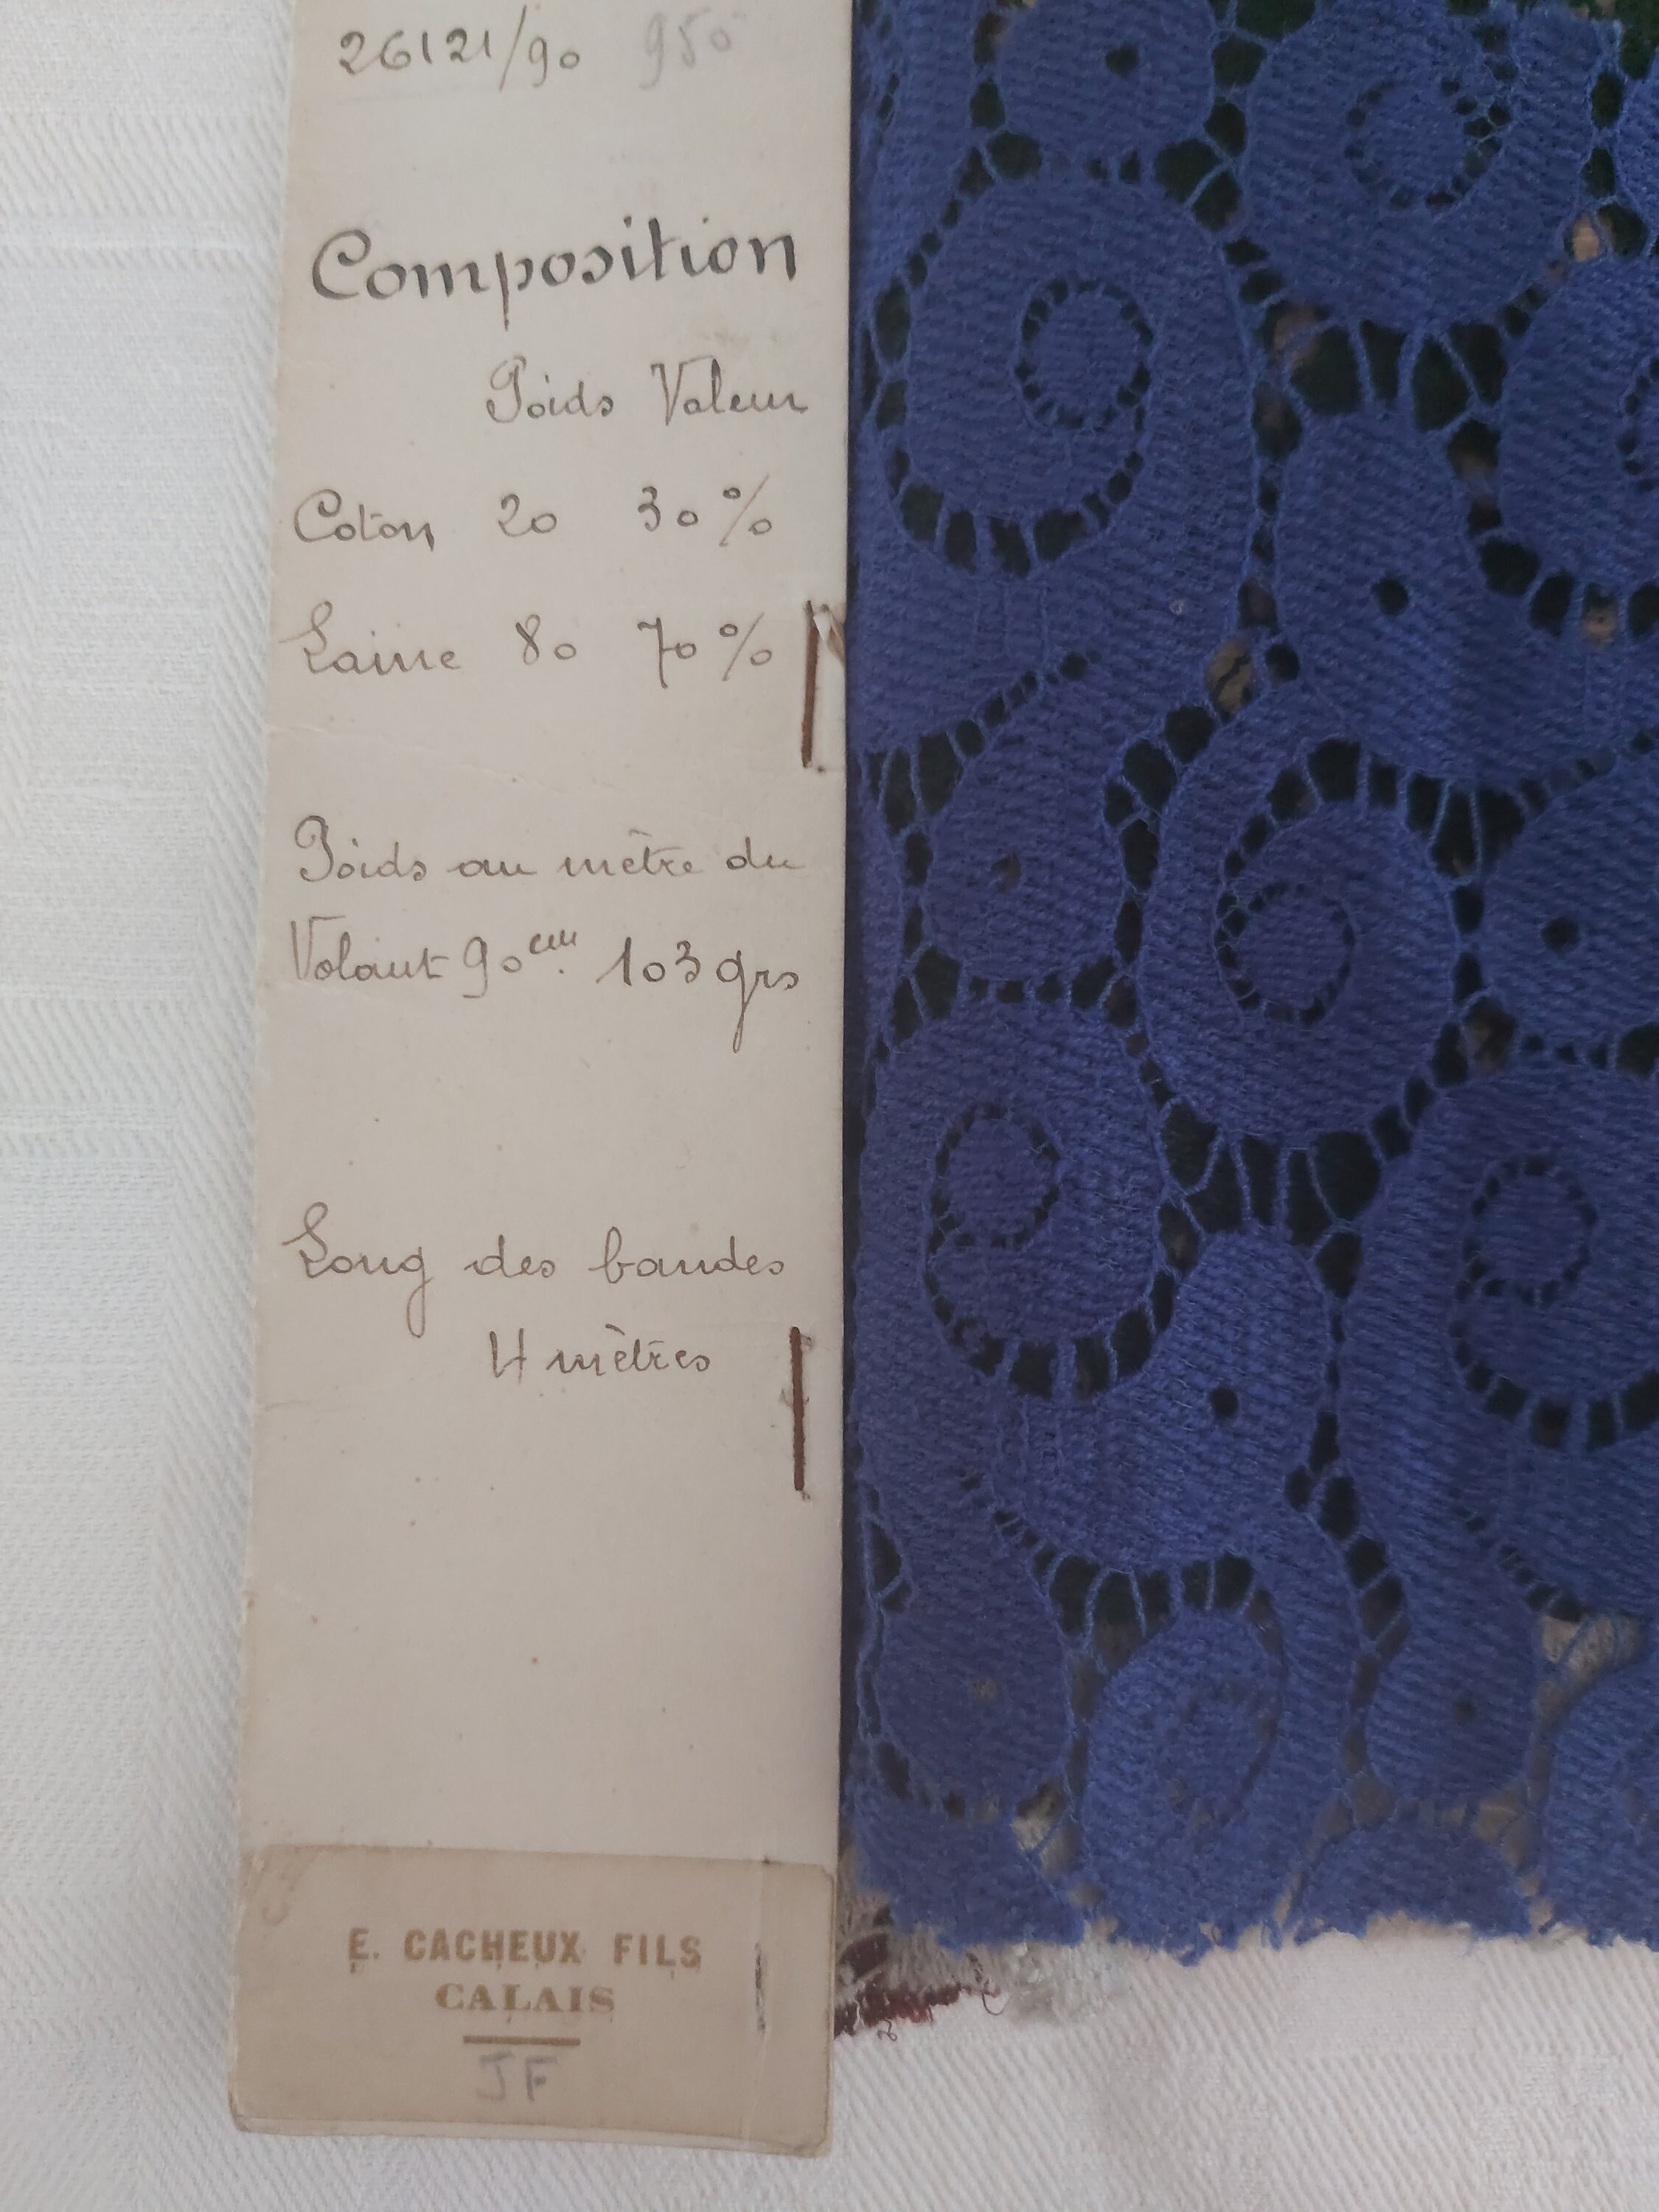 26121/90 950
Composition
Poids Valeur
Coton 20 30%
Laine 80 70%
Poids au mètre du
Volant 90cm. 103 grs
Long des bandes
4 mètres
E. CACHEUX FILS
CALAIS
JF